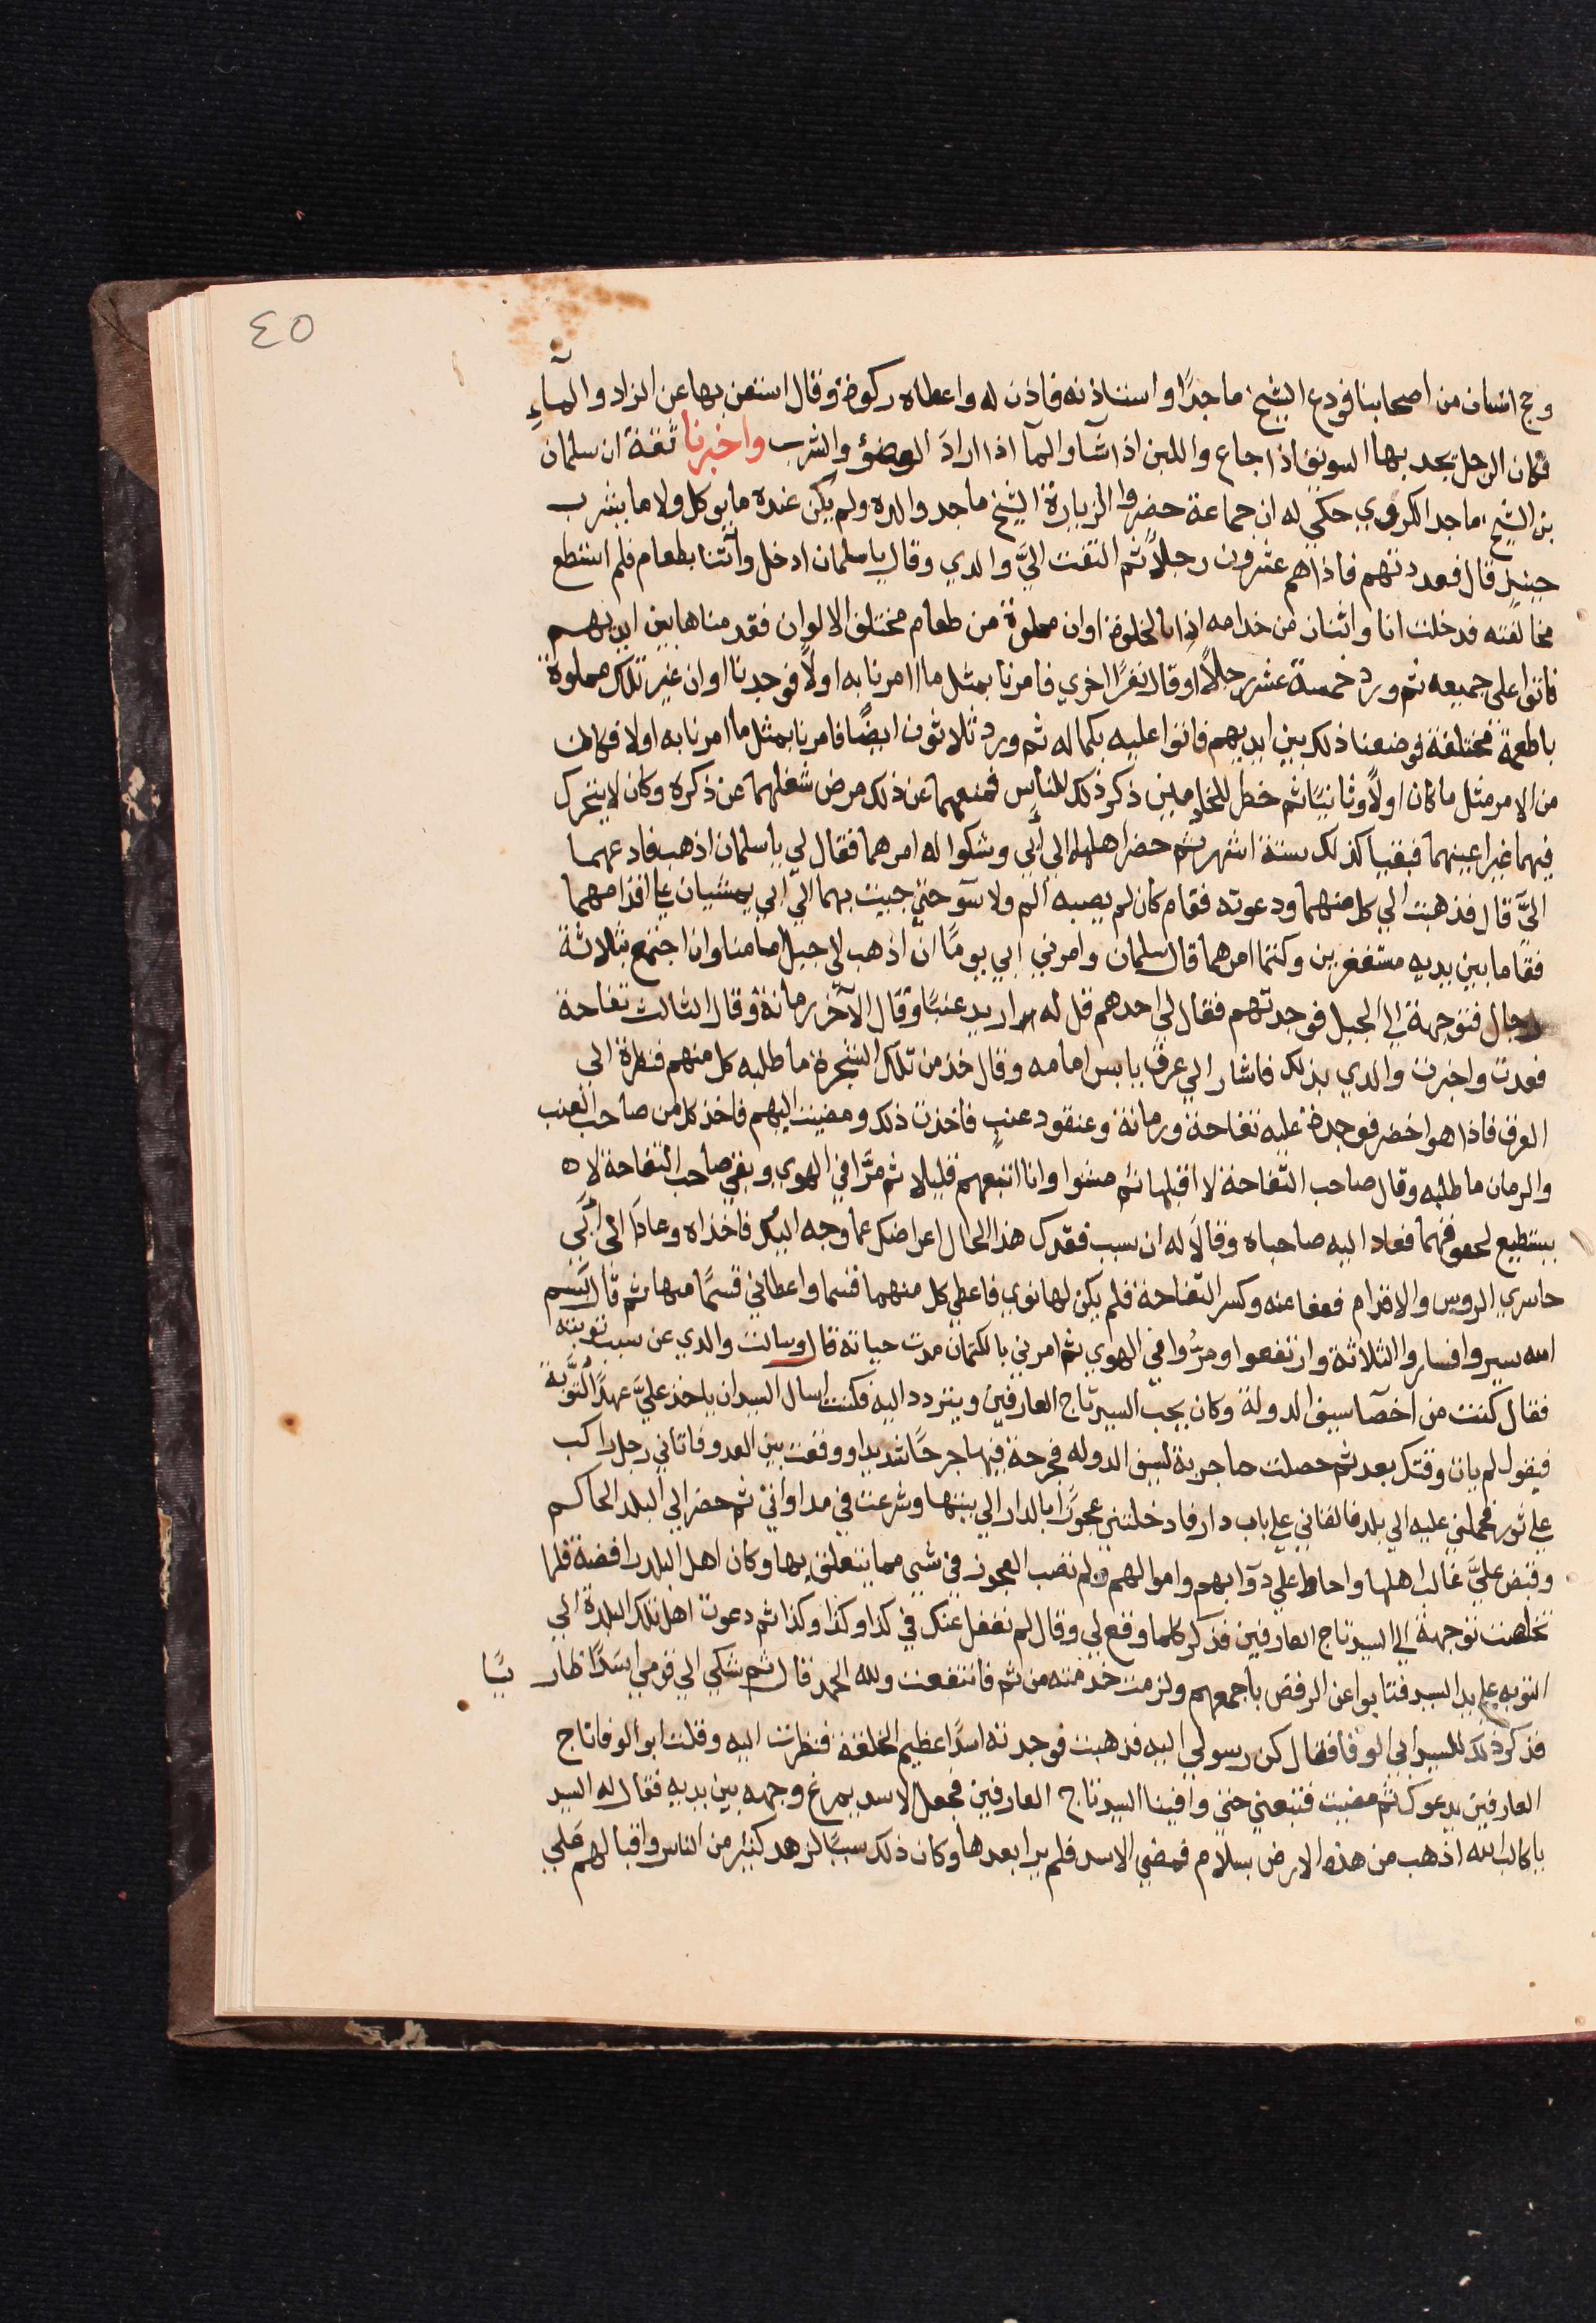 ٤٥
وحج انسان من اصحابنا فودع الشيخ ماجدًا واستاذنه فاذن له واعطاه ركوة وقال استعن بها عن الزاد والمآءِ
فكان الرجل يجد بها السويق اذا جاع واللبن اذا شآ والمآ اذا ارادَ الوضؤ والشرب واخبرنا ثقة ان سلمان
بن الشيخ ماجد الكردي حكي له ان جماعة حضروا الزيارة الشيخ ماجد والده ولم يكن عنده ما يوكل ولا ما يشرب
حينيذٍ قال فعددتهم فاذا هم عشرون رجلًا ثم التفت اليَّ والدي وقال يا سلمان ادخل وآتنا بطعام فلم استطع
مخالفته فدخلت انا واثنان من خدامه اذا بالخلوة اوان مملوة من طعام مختلف الالوان فقدمناها بين ايديهم
فاتوا على جميعه ثم ورد خمسة عشر رجلًا او قال نفرًا اخري فامرنا بمثل ما امرنا به اولًا فوجدنا اوان غير تلك مملوة
باطعمة مختلفة فوضعنا ذلك بين ايديهم فاتوا عليه بكماله ثم ورد ثلاثون ايضًا فامرنا بمثل ما امرنا به اولا فكان
من الامر مثل ما كان اولًا وثانيًا ثم خطر للخادمين ذكر ذلك للناس فمنعهما عن ذلك مرض شغلهما عن ذكره وكان لا يتحرك
فيهما غير اعينهما فبقيا كذلك ستة اشهر ثم حضر اهلهما الي أبي وشكوا له امرهما فقال لي يا سلمان اذهب فادعهما
اليَّ قال فذهبت الي كل منهما ودعوته فقام كان لم يصبه ألم ولا سوٓ حتي جيت بهما الي ابي يمشيان علي اقدامهما
فقاما بين يديه مستغفرين وكتما امرهما قال سلمان وامرني ابي يومًا ان اذهب الي جبل امامنا وان اجتمع بثلاثة
رجال فتوجهة الي الجبل فوجدتهم فقال لي احدهم قل له اريد عنبًا وقال الآخر رمانة وقال الثالث تفاحة
فعدت واخبرت والدي بذلك فاشار الي عرق يابس امامه وقال خذ من تلك الشجرة ما طلبه كل منهم فنظرة الي
العرق فاذا هو اخضر فوجدة عليه تفاحة ورمانة وعنقود عنب فاخذت ذلك ومضيت اليهم فاخذ كل من صاحب العنب
والرمان ما طلبه وقال صاحب التفاحة لا اقبلها ثم مشوا وانا اتبعهم قليلا ثم مرَّا في الهوي وبقي صاحب التفاحة لا
يستطيع لحوقهما فعاد اليه صاحباه وقالا له ان سبب فقدك هذا الحال اعراضك عما وجه اليك فاخذاه وعادَا الي أبَي
حاسري الروس والاقدام فعفا عنه وكسر التفاحة فلم يكن لها نوي فاعطي كل منهما قسما واعطاني قسمًا منها ثم قال بسم
الله سيروا فساروا الثلاثة وارتفعوا ومرُّوا في الهوي ثم امرني بالكتمان مدت حياته قال وسالت والدي عن سبب توبته
فقال كنت من اخصآ سيف الدولة وكان يحب السيد تاج العارفين ويتردد اليه فكنت اسال السيد ان ياخذ عليَّ عهدَ التوبة
فيقول لم يان وقتك بعد ثم حصلت محاربة لسيف الدوله فجرحة فيها جرحًا شديدا ووقعت بين العدو فاتاني رجل راكب
علي ثور فحملني عليه الي بلد فالقاني علي باب دار فادخلتني عجوزًا بالدار الي بيتها وشرعت في مداواتي ثم حضر الي البلد الحاكم
وقبض عليَّ غالب اهلها واحاط علي دوٓابهم واموالهم ولم تصب العجوز في شي مما يتعلق بها وكان اهل البلد رافضة فلما
تخلصت توجهة الي السيد تاج العارفين فذكر كلما وقع لي وقال لم نغفل عنك في كذا وكذا وكذا ثم دعوت اهل تلك البلدة الي
التوبه علي يد السيد فتابوا عن الرفض باجمعهم ولزمت خدمته من ثم فانتفعت ولله الحمد قال ثم شكي الي قومي اسَدًا ظار يًا
فذكر ذلك للسيد ابي الوفا فقال كن رسولي اليه فذهبت فوجدته اسدًا عظيم الخلقة فنظرت اليه وقلت ابو الوفا تاج
العارفين يدعوك ثم مضيت فتبعني حتي وافينا السيد تاج العارفين فجعل الاسد يمرغ وجهه بين يديه فقال له السيد
يا كالب الله اذهب من هذه الارض بسلام فمضي الاسد فلم يرا بعدها وكان ذلك سببًا لزهد كثير من الناس واقبالهم علي